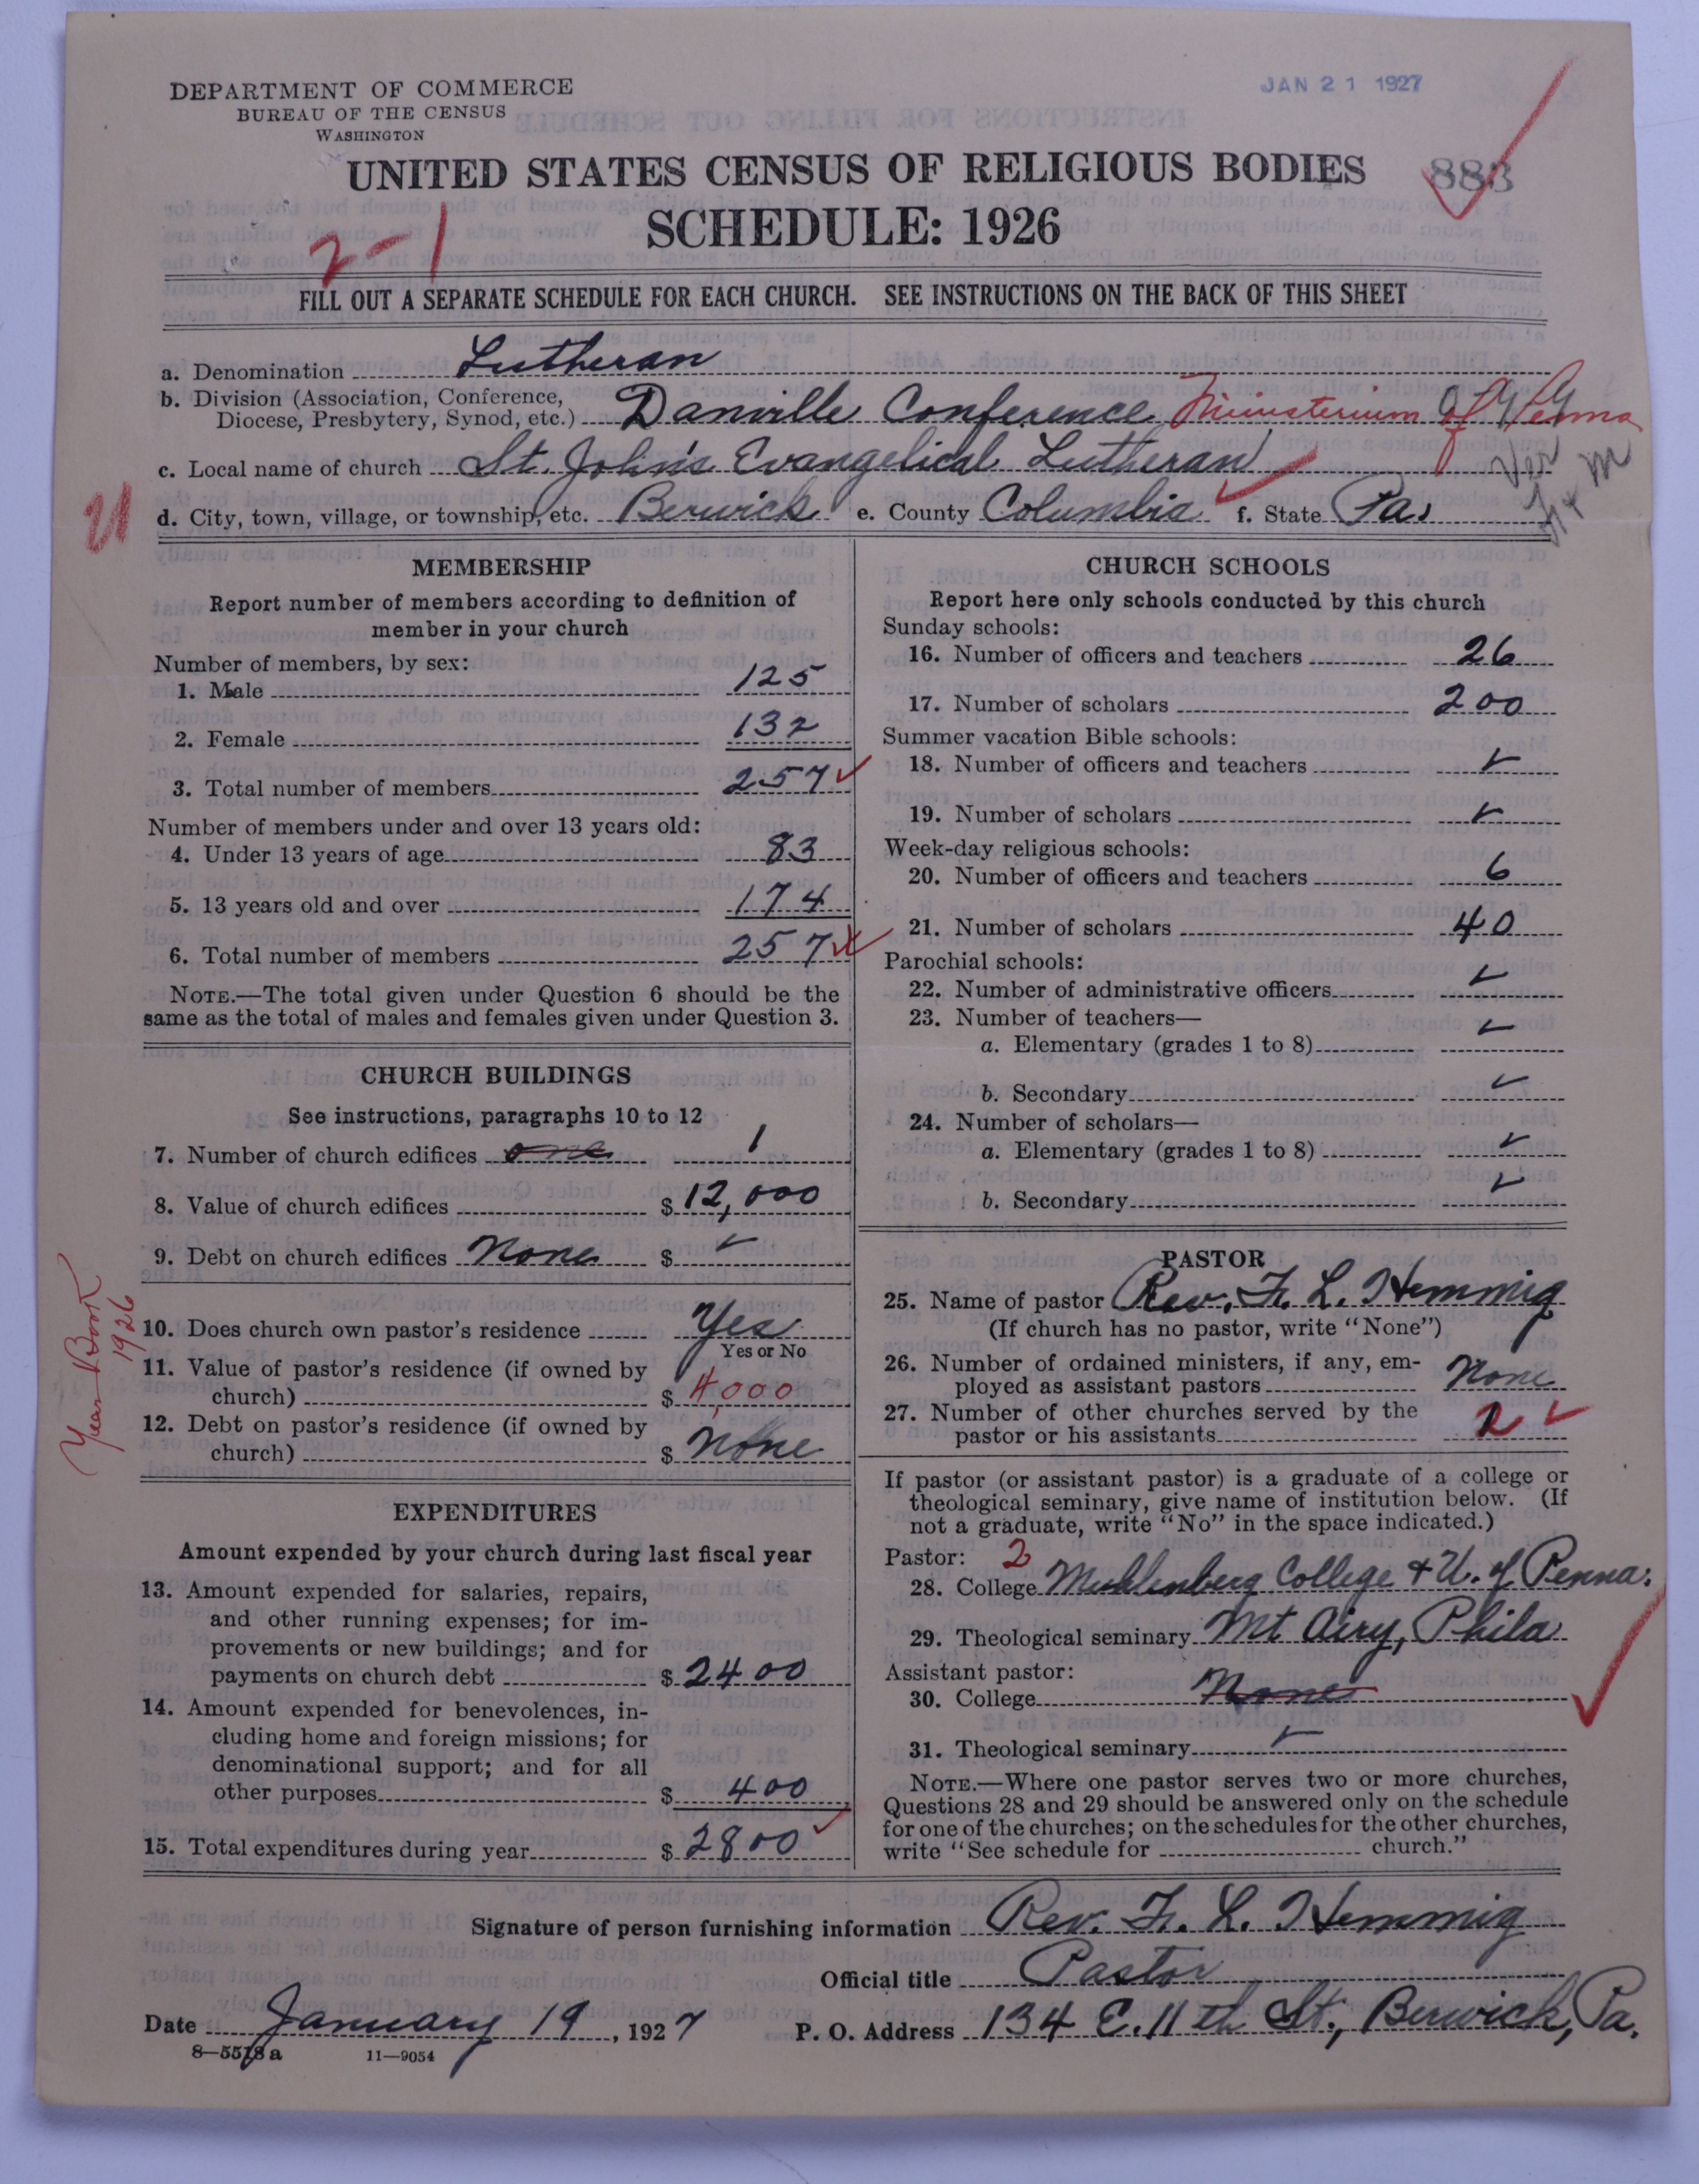 DEPARTMENT OF COMMERCE
BUREAU OF THE CENSUS
WASHINGTON
JAN 21 1927
UNITED STATES CENSUS OF RELIGIOUS BODIES
883
SCHEDULE: 1926
2-1
FILL OUT A SEPARATE SCHEDULE FOR EACH CHURCH. SEE INSTRUCTIONS ON THE BACK OF THIS SHEET
a. Denomination Lutheran
b. Division (Association, Conference,
Diocese, Presbytery, Synod, etc.) Danville Conference Ministerium of Penna
c. Local name of church St. John's Evangelical Lutheran
d. City, town, village, or township, etc. Berwick e. County Columbia f. State Pa.
MEMBERSHIP
Report number of members according to definition of
member in your church
Number of members, by sex:
1. Male 125
2. Female 132
3. Total number of members 257
Number of members under and over 13 years old:
4. Under 13 years of age 83
5. 13 years old and over 174
6. Total number of members 257
NOTE.—The total given under Question 6 should be the
same as the total of males and females given under Question 3.
CHURCH BUILDINGS
See instructions, paragraphs 10 to 12
7. Number of church edifices one 1
8. Value of church edifices $ 12,000
9. Debt on church edifices None $
Year Book
1926
10. Does church own pastor's residence Yes
Yes or No
11. Value of pastor's residence (if owned by
church) $ 4,000
12. Debt on pastor's residence (if owned by
church) $ None
EXPENDITURES
Amount expended by your church during last fiscal year
13. Amount expended for salaries, repairs,
and other running expenses; for im-
provements or new buildings; and for
payments on church debt $ 2400
14. Amount expended for benevolences, in-
cluding home and foreign missions; for
denominational support; and for all
other purposes $ 400
15. Total expenditures during year $ 2800
CHURCH SCHOOLS
Report here only schools conducted by this church
Sunday schools:
16. Number of officers and teachers 26
17. Number of scholars 200
Summer vacation Bible schools:
18. Number of officers and teachers
19. Number of scholars
Week-day religious schools:
20. Number of officers and teachers 6
21. Number of scholars 40
Parochial schools:
22. Number of administrative officers
23. Number of teachers—
a. Elementary (grades 1 to 8)
b. Secondary
24. Number of scholars—
a. Elementary (grades 1 to 8)
b. Secondary
PASTOR
25. Name of pastor Rev. F. L. Hemmig
(If church has no pastor, write "None")
26. Number of ordained ministers, if any, em-
ployed as assistant pastors None
27. Number of other churches served by the
pastor or his assistants 2
If pastor (or assistant pastor) is a graduate of a college or
theological seminary, give name of institution below. (If
not a graduate, write "No" in the space indicated.)
Pastor: 2
28. College Muhlenberg College & U. of Penna.
29. Theological seminary Mt Airy, Phila
Assistant pastor:
30. College None
31. Theological seminary
NOTE.—Where one pastor serves two or more churches,
Questions 28 and 29 should be answered only on the schedule
for one of the churches; on the schedules for the other churches,
write "See schedule for church."
Signature of person furnishing information Rev. F. L. Hemmig
Official title Pastor
Date January 19, 1927 P. O. Address 134 E. 11th St., Berwick, Pa.
8—5518a 11—9054